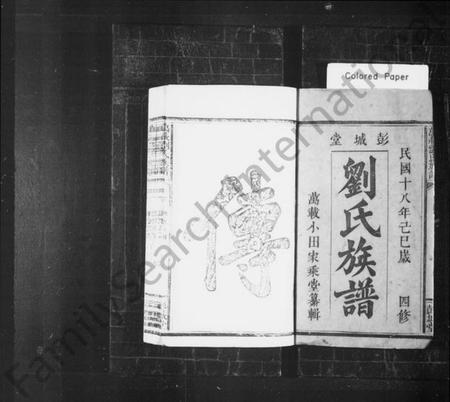 Colored Paper
彭城堂
民國十八年己巳歲 四修
劉氏族譜
萬載小田家乘堂纂輯
傳
FamilySearch International